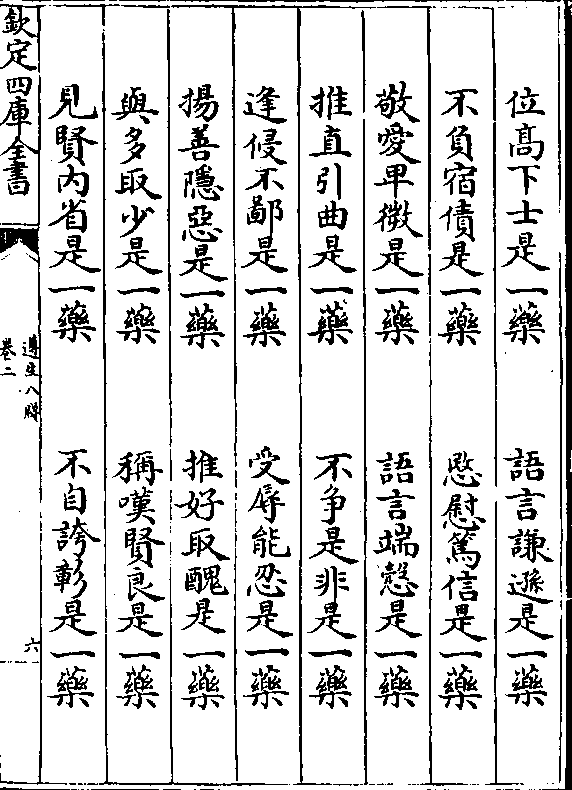 位髙下士是一藥　語言謙遜是一藥
不負宿債是一藥　愍慰篤信是一藥
敬愛卑微是一藥　語言端慤是一藥
推直引曲是一藥　不争是非是一藥
逢侵不鄙是一藥　受辱能忍是一藥
揚善隱惡是一藥　推好取醜是一藥
與多取少是一藥　稱嘆賢良是一藥
見賢内省是一藥　不自誇彰是一藥
欽定四庫全書
遵生八牋
卷二
六